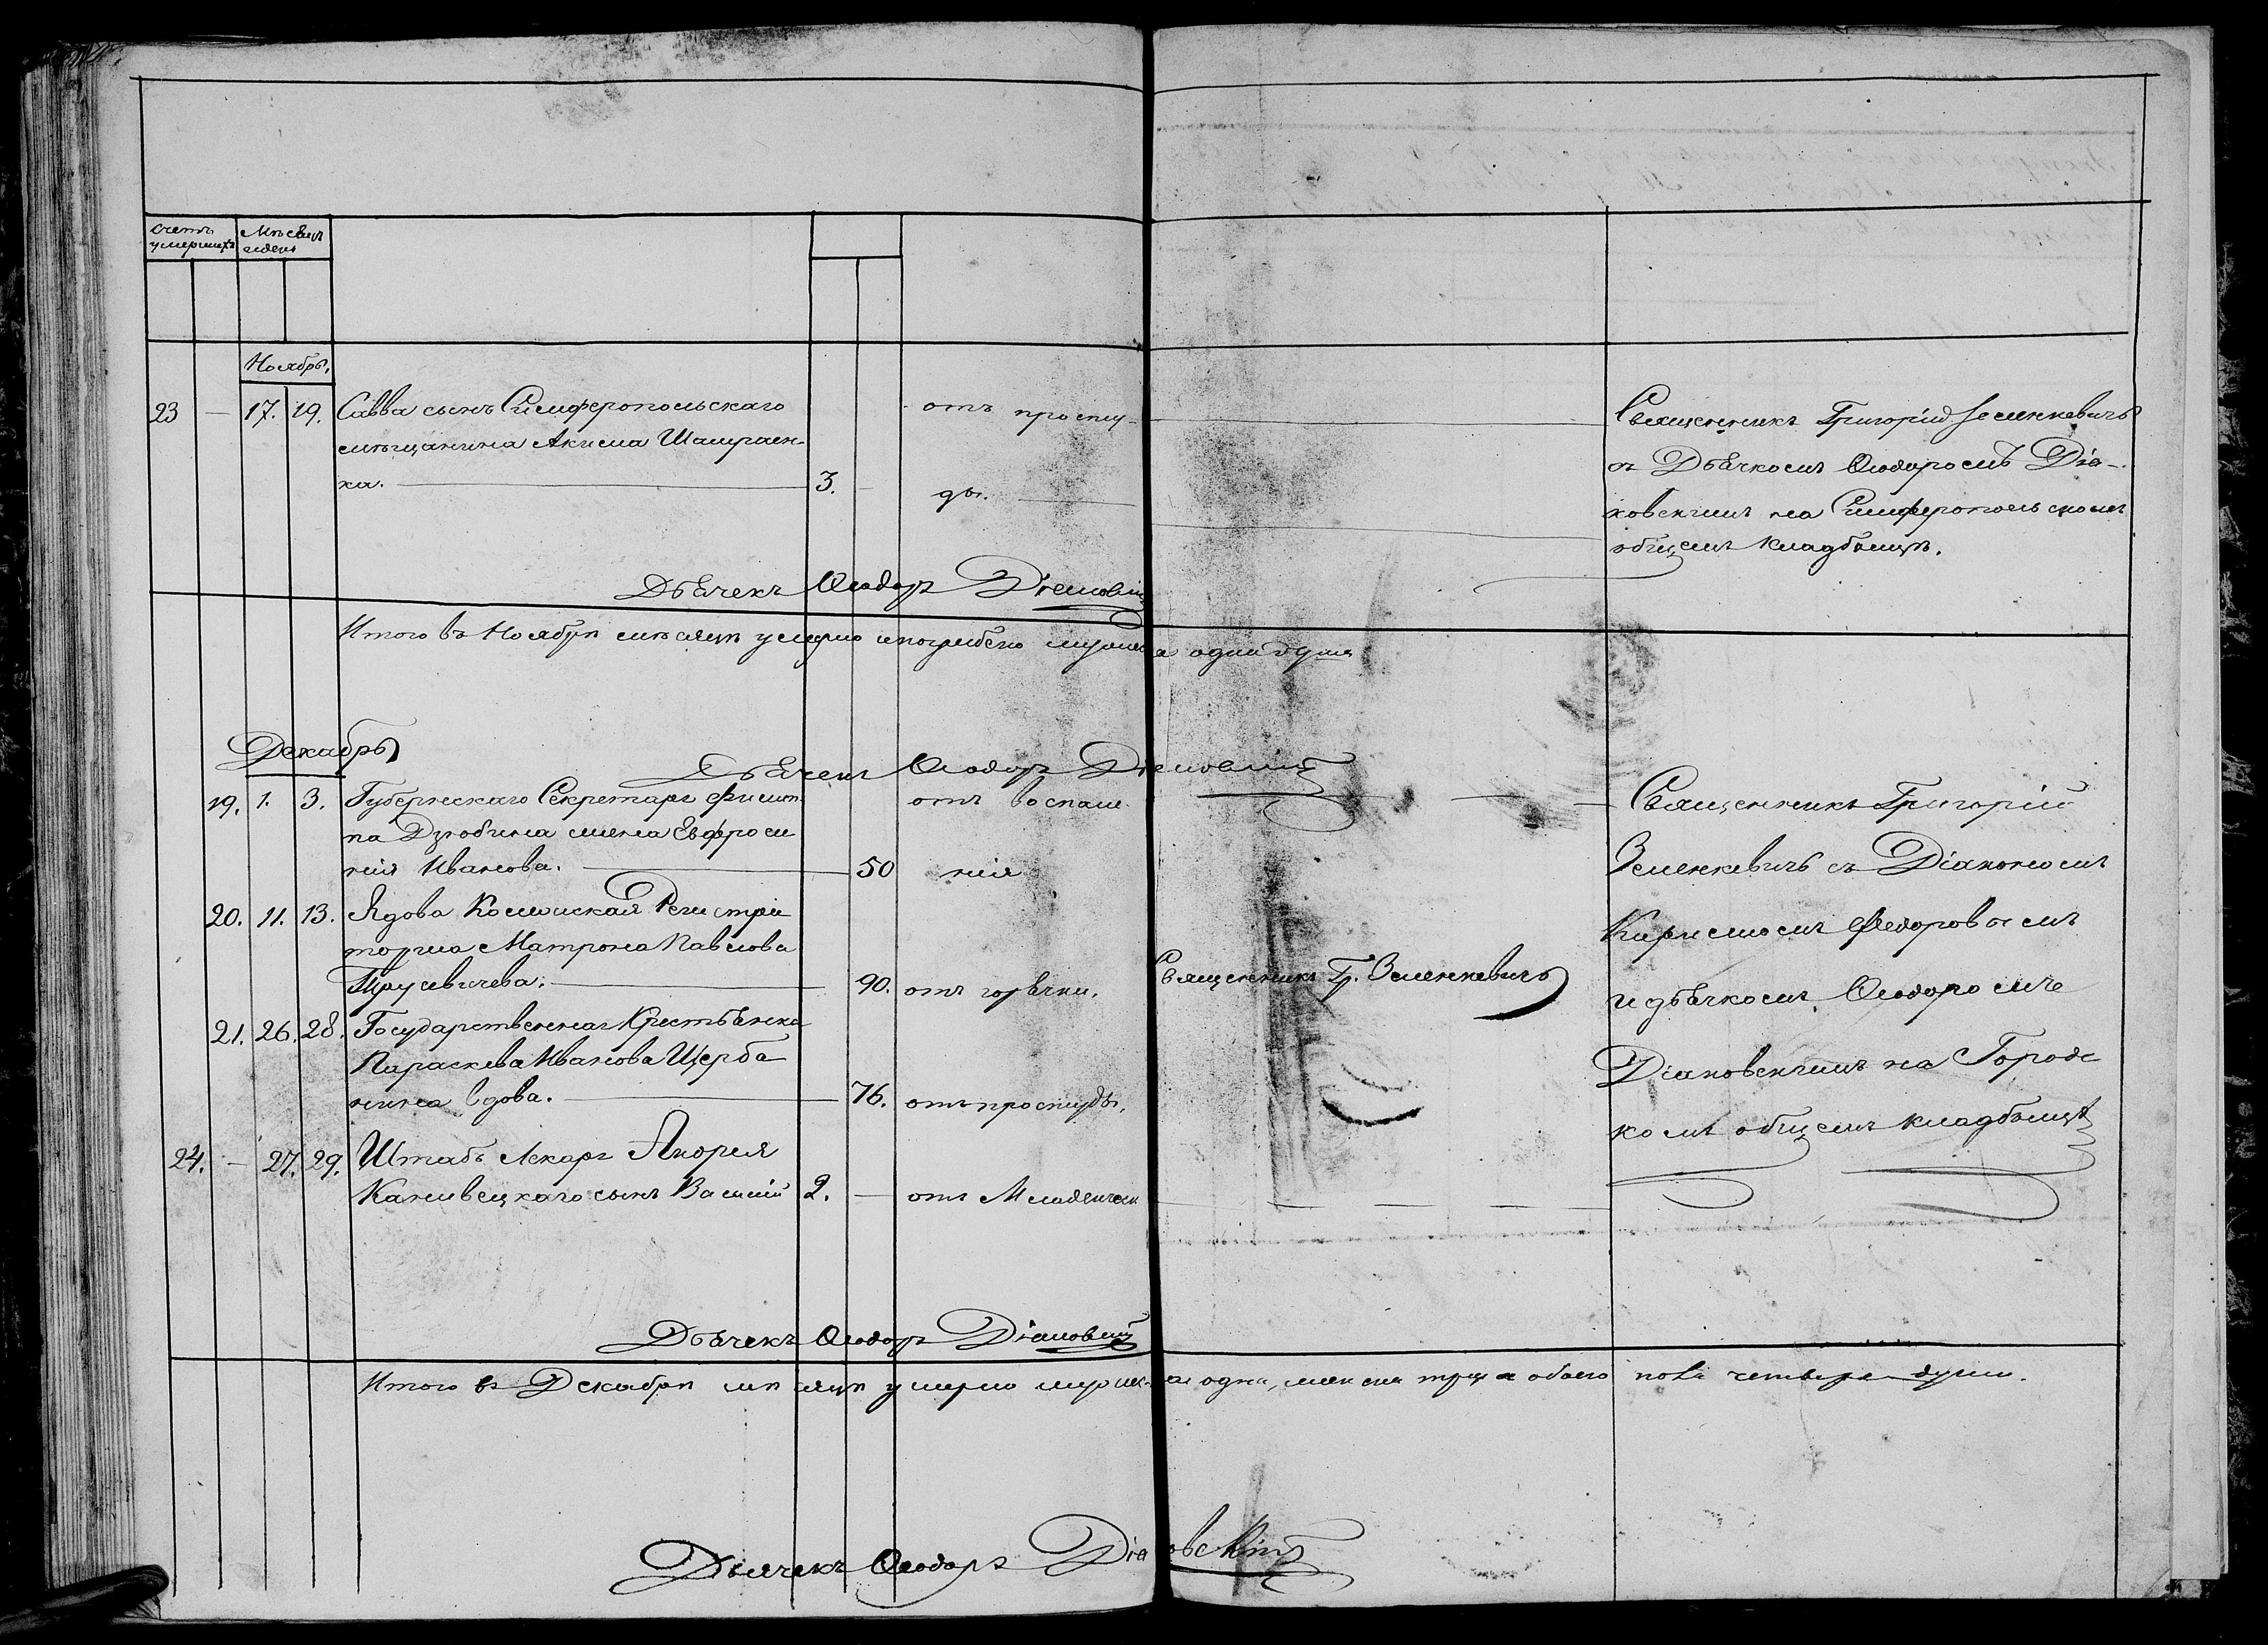 Счетъ умершихъ
Мѣсяцъ и день
Ноябрь.
23 — 17. 19. Савва сынъ Симферопольскаго
мѣщанина Акима Шапраен-
ка. 3. —
отъ просту-
ды.
Священникъ Григорій Зеленкевичъ
съ Дьячкомъ Ѳеодоромъ Дія-
ковскимъ на Симферопольскомъ
общемъ кладбищѣ.
Дьячекъ Ѳеодоръ Діаковскій
Итого въ Ноябрѣ мѣсяцѣ умерло и погребено мужеска одна душа
Декабрь
Дьячекъ Ѳеодоръ Діаковскій
19. 1. 3. Губернскаго Секретаря Филип-
па Дзюбина жена Евфроси
нія Иванова. 50
отъ воспале
нія
20. 11. 13. Вдова Регистра
торша Матрона Павлова
90. отъ горячки.
21. 26. 28. Государственная Крестьянка
Параскева Иванова Щерба
нина вдова. 76. отъ простуды.
24. — 27. 29. Штабъ Лекаря Андрея
Каневецкаго сынъ Василій 2. — отъ Младенческ
Священникъ Гр. Зеленкевичъ
Священникъ Григорій
Зеленкевичъ съ Діакономъ
Кириломъ Федоровымъ
и дьячкомъ Ѳеодоромъ
Діаковскимъ на Городс
комъ общемъ кладбищѣ
Дьячекъ Ѳеодоръ Діаковскій
Итого въ Декабрѣ мѣсяцѣ умерло мужеска одна, женска три а обоего пола четыре души.
Дьячекъ Ѳеодоръ Діаковскій